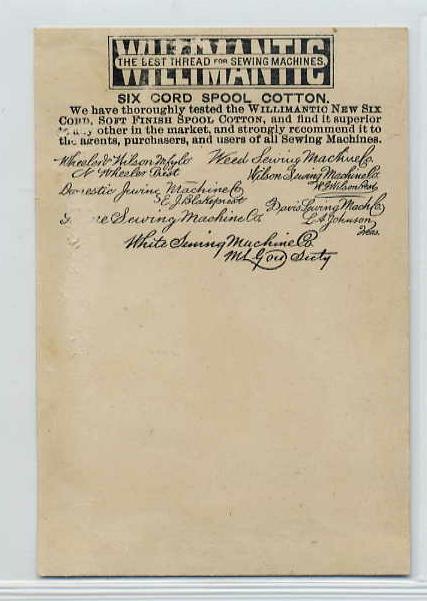 WILLIMANTIC
THE BEST THREAD FOR SEWING MACHINES
WILLIMANTIC
SIX CORD SPOOL COTTON.
We have thoroughly tested the WILLIMANTIC NEW SIX
CORD, SOFT FINISH SPOOL COTTON, and find it superior
to any other in the market, and strongly recommend it to
the agents, purchasers, and users of all Sewing Machines.
Wheeler & Wilson Mfg Co
N Wheeler Prest
Weed Sewing Machine Co.
Wilson Sewing Machine Co.
W.G. Wilson Prest
Domestic Sewing Machine Co
E J Blakeprest
Davis Sewing Mach. Co.
L A Johnson
Treas.
Sewing Machine Co
White Sewing Machine Co.
Secty